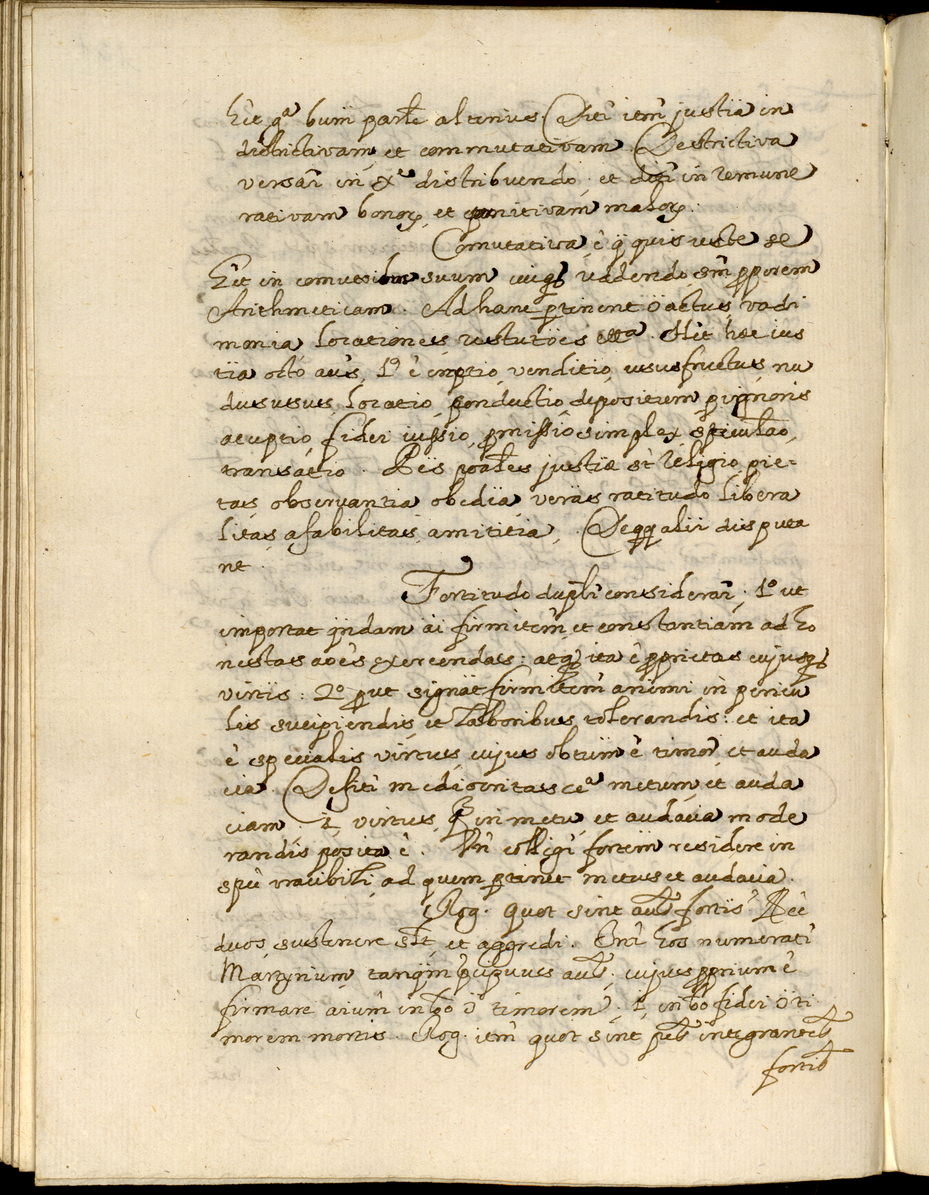 hēt qᵃ bum parte alterius Diti item justia in
districtivam et commutativam. Destrictiva
versar in distribuendo et in remune
rativam bonoꝝ, et punitivam maloꝝ.
Comutativa ē q̄ quis uste se
hēt in comutoibus suum cuiqȝ uddendo sm̄ ꝓporem
Arithmeticam. Ad hanc ꝑtinent actus vadi
monia locationes restutiōes Hēt hæc ius
tia octo 1º ē emptio, venditio, ususfructus nu
dus usus, locatio, conductio depositum pignoris
aceptio, fidei iussio, ꝓmissio simplex
transactio. justiæ st̄ Religio, pie-
tas observantia obediīa veritas ratitudo libera
litas, afabilitas, amititia, De qq alii disputa
nt.
Fortitudo duplr̄ considerar̄. 1º ut
importat qn̄dam ai firmitem̄, et constantiam ad ho
nestas aoēs exercendas: atqȝ ita ē ꝓprietas cujusqȝ
virtiis: 2º ꝓut signat firmitem̄ animi in pericu
lis sucipiendis, et laboribus tolerandis: et ita
ē specialis virtus, cujus obtum ē timor, et auda
cia. Defitī mediocritas ceᵃ metum, et auda
ciam. virtus, in metu et audacia mode
randis posita ē. Un colligī fortem residere in
irascibili, ad quem ꝑtinet metus et audacia.
Rog. quot sint fortis? 
duos, sustenere et aggredi. hos numerati
Martyrium tanqm̄ cujus ꝓprium ē
firmare aium̄ timorem fidei ti
morem mortis. Rog. item̄ quot sint integrantes